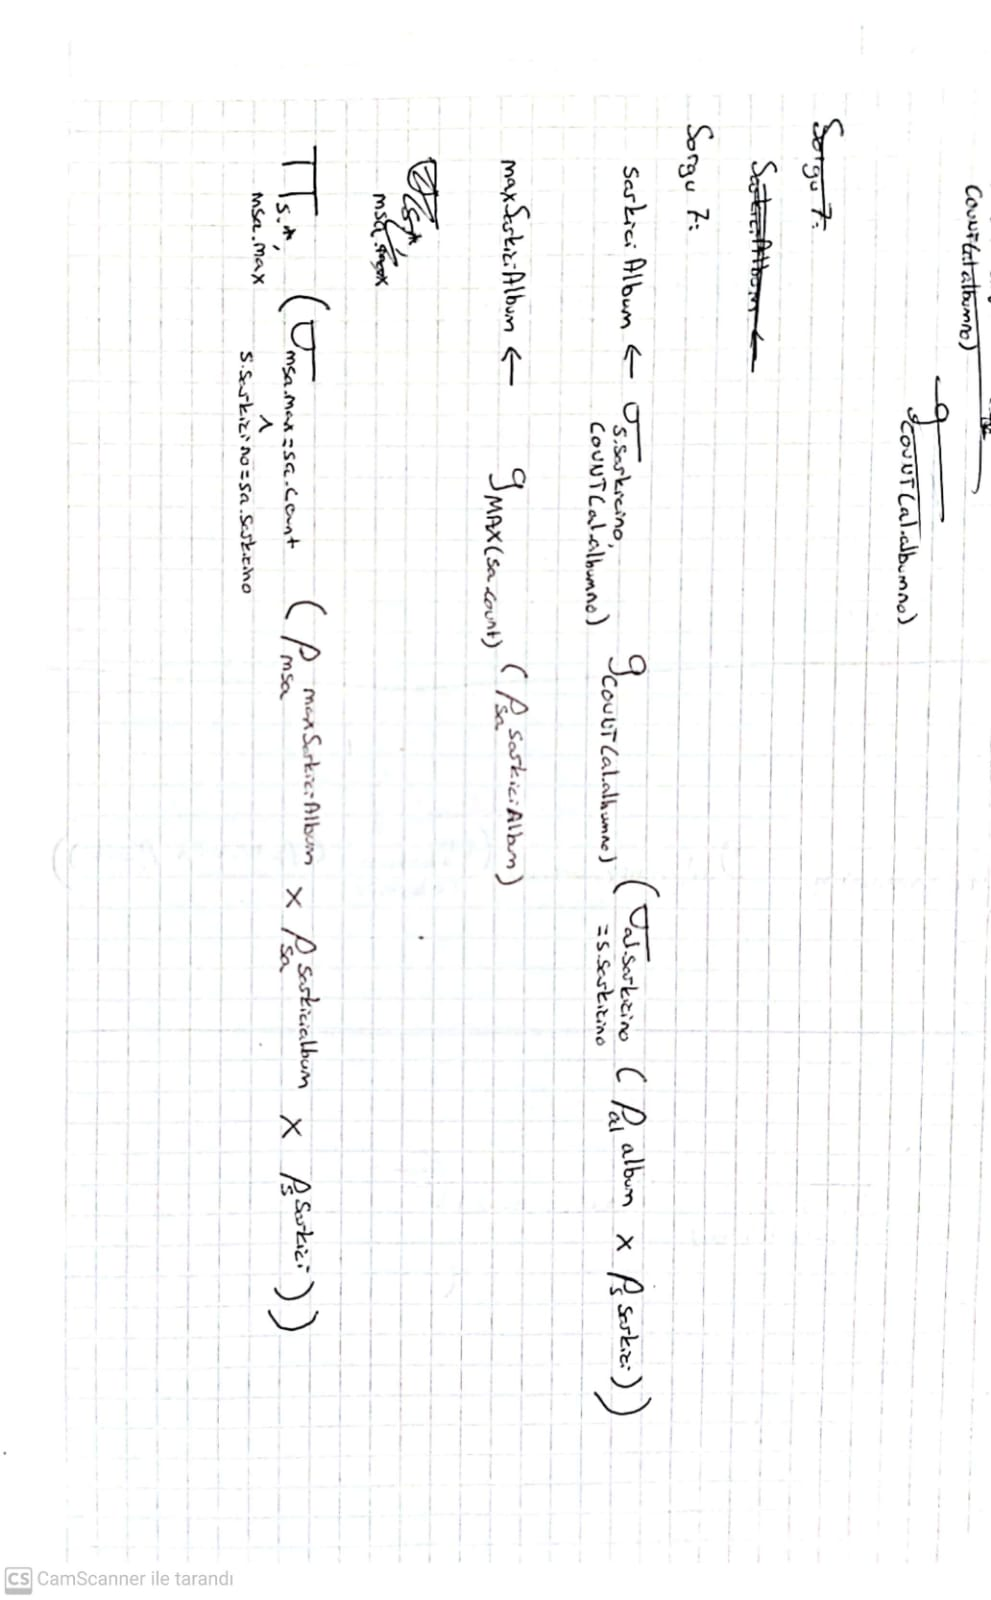 COUNT(al.albumno)
g COUNT(al.albumno)
Sorgu 7:
SarkiciAlbum ←
Sorgu 7:
sarkici Album ← σ s.sarkicino, COUNT(al.albumno) g COUNT(al.albumno) (σ al.sarkicino = s.sarkicino (ρ al album x ρ s sarkici))
maxSarkiciAlbum ← g MAX(sa.count) (ρ sa sarkiciAlbum)
s.*,
msa.max
Π s.*, msa.max (σ msa.max = sa.count ∧ s.sarkicino = sa.sarkicino (ρ msa maxSarkiciAlbum x ρ sa sarkicialbum x ρ s sarkici))
CS CamScanner ile tarandı